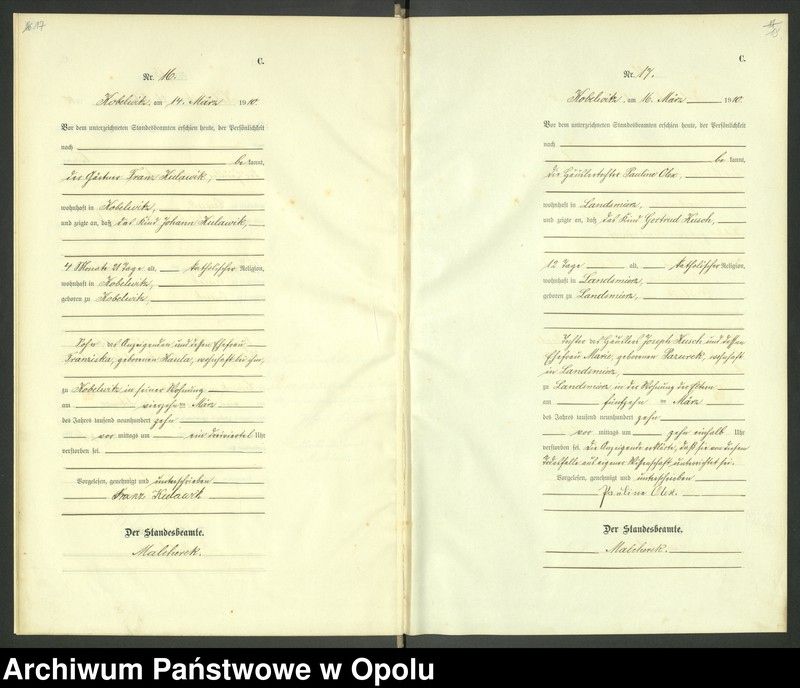 17
C.
Nr. 16.
Kobelwitz, am 14. März 1910.
Vor dem unterzeichneten Standesbeamten erschien heute, der Persönlichkeit
nach
be kannt,
der Gärtner Franz Kulawik,
wohnhaft in Kobelwitz,
und zeigte an, daß das Kind Johann Kulawik,
4 Monate 21 Tage alt, katholischer Religion,
wohnhaft in Kobelwitz,
geboren zu Kobelwitz,
Sohn des Anzeigenden und dessen Ehefrau
Franziska, geborenen Kaula, wohnhaft bei ihm,
zu Kobelwitz in seiner Wohnung
am vierzehnten März
des Jahres tausend neunhundert zehn
vor mittags um ein dreiviertel Uhr
verstorben sei.
Vorgelesen, genehmigt und unterschrieben
Franz Kulawik
Der Standesbeamte.
Malcherek.
18
C.
Nr. 17.
Kobelwitz, am 16. März 1910.
Vor dem unterzeichneten Standesbeamten erschien heute, der Persönlichkeit
nach
be kannt,
die Häuslertochter Pauline Olex,
wohnhaft in Landsmierz,
und zeigte an, daß das Kind Gertrud Kusch,
12 Tage alt, katholischer Religion,
wohnhaft in Landsmierz,
geboren zu Landsmierz,
Tochter des Häuslers Joseph Kusch und dessen
Ehefrau Marie, geborenen Pazurek, wohnhaft
in Landsmierz,
zu Landsmierz in der Wohnung der Eltern
am fünfzehnten März
des Jahres tausend neunhundert zehn
vor mittags um zehn einhalb Uhr
verstorben sei. Die Anzeigende erklärte, daß sie von diesem
Todesfalle aus eigener Wissenschaft unterrichtet sei.
Vorgelesen, genehmigt und unterschrieben
Pauline Olex.
Der Standesbeamte.
Malcherek.
Archiwum Państwowe w Opolu